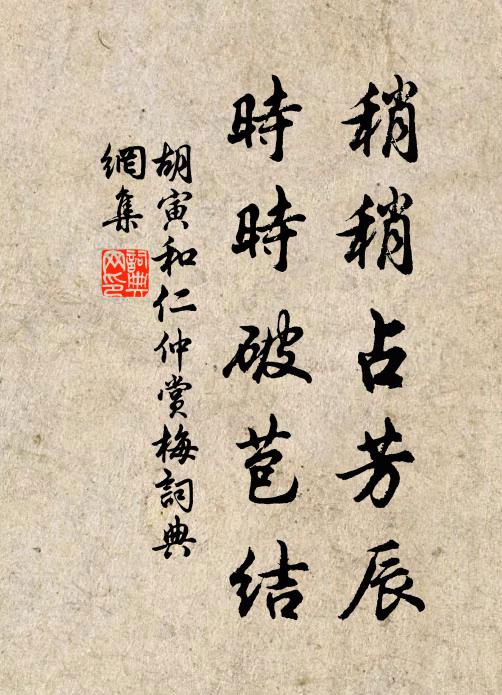 稍稍占芳辰
時時破苞結
胡寅和仁仲賞梅詞典
網集
詞典
网印